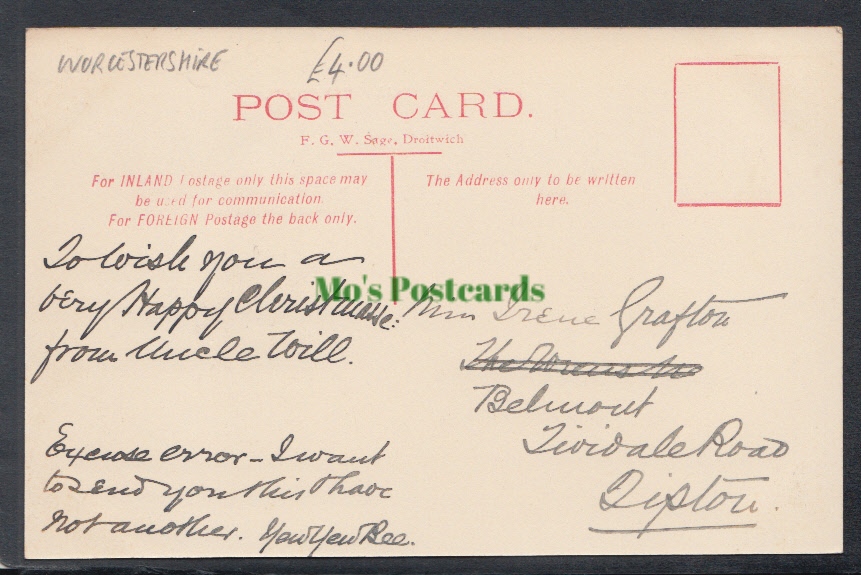 WORCESTERSHIRE
£4.00
POST CARD.
F. G. W. Sage, Droitwich
For INLAND Postage only this space may
be used for communication.
For FOREIGN Postage the back only.
The Address only to be written
here.
To wish you a
very Happy Christmasse:
from Uncle Will.
Excuse error - I want
to send you this & have
not another.
Mo's Postcards
Miss Irene Grafton
Belmont
Tividale Road
Tipton.